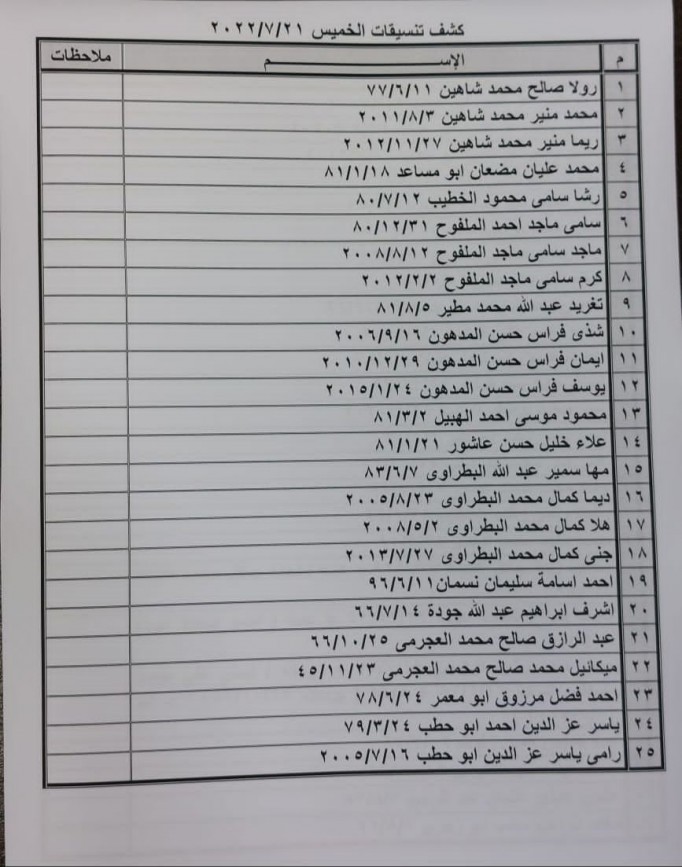 كشف تنسيقات الخميس ٢٠٢٢/٧/٢١
م الإســـــــم ملاحظات
١ رولا صالح محمد شاهين ٧٧/٦/١١
٢ محمد منير محمد شاهين ٢٠١١/٨/٣
٣ ريما منير محمد شاهين ٢٠١٢/١١/٢٧
٤ محمد عليان مضعان ابو مساعد ٨١/١/١٨
٥ رشا سامى محمود الخطيب ٨٠/٧/١٢
٦ سامى ماجد احمد الملفوح ٨٠/١٢/٣١
٧ ماجد سامى ماجد الملفوح ٢٠٠٨/٨/١٢
٨ كرم سامى ماجد الملفوح ٢٠١٢/٢/٢
٩ تغريد عبد الله محمد مطير ٨١/٨/٥
١٠ شذى فراس حسن المدهون ٢٠٠٦/٩/١٦
١١ ايمان فراس حسن المدهون ٢٠١٠/١٢/٢٩
١٢ يوسف فراس حسن المدهون ٢٠١٥/١/٢٤
١٣ محمود موسى احمد الهبيل ٨١/٣/٢
١٤ علاء خليل حسن عاشور ٨١/١/٢١
١٥ مها سمير عبد الله البطراوى ٨٣/٦/٧
١٦ ديما كمال محمد البطراوى ٢٠٠٥/٨/٢٣
١٧ هلا كمال محمد البطراوى ٢٠٠٨/٥/٢
١٨ جنى كمال محمد البطراوى ٢٠١٣/٧/٢٧
١٩ احمد اسامة سليمان نسمان ٩٦/٦/١١
٢٠ اشرف ابراهيم عبد الله جودة ٦٦/٧/١٤
٢١ عبد الرازق صالح محمد العجرمى ٦٦/١٠/٢٥
٢٢ ميكائيل محمد صالح محمد العجرمى ٤٥/١١/٢٣
٢٣ احمد فضل مرزوق ابو معمر ٧٨/٦/٢٤
٢٤ ياسر عز الدين احمد ابو حطب ٧٩/٣/٢٤
٢٥ رامى ياسر عز الدين ابو حطب ٢٠٠٥/٧/١٦